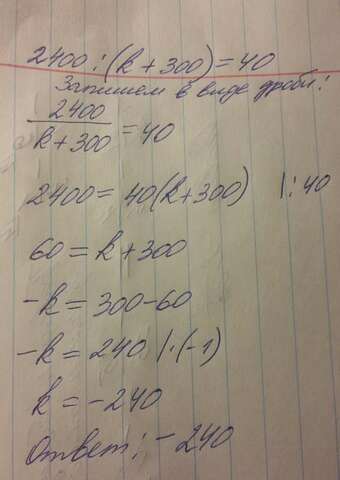 2400:(k+300)=40
Запишем в виде дроби:
2400
k+300 =40
2400=40(k+300) |:40
60=k+300
-k=300-60
-k=240 |·(-1)
k=-240
Ответ:-240